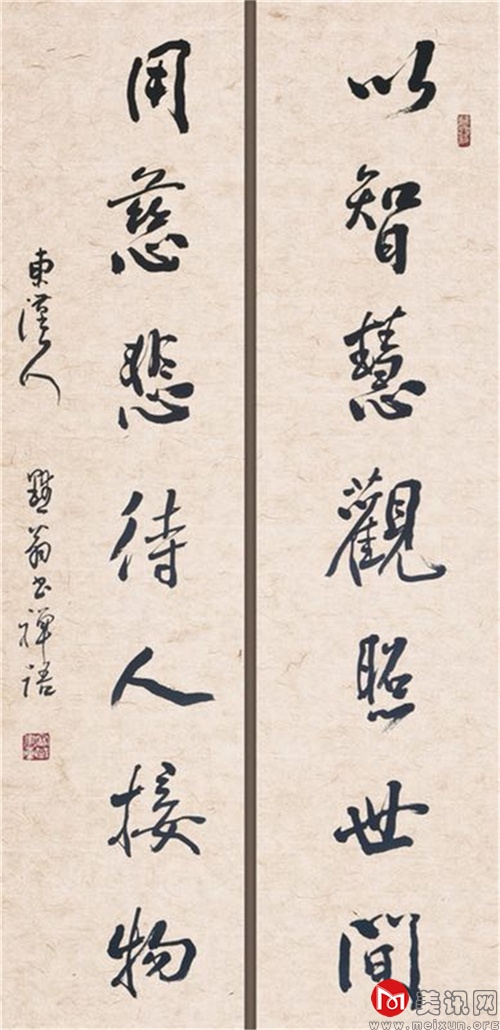 以智慧觀照世間
用慈悲待人接物
東漢人
翁書禪語
美讯网
www.meixun.org